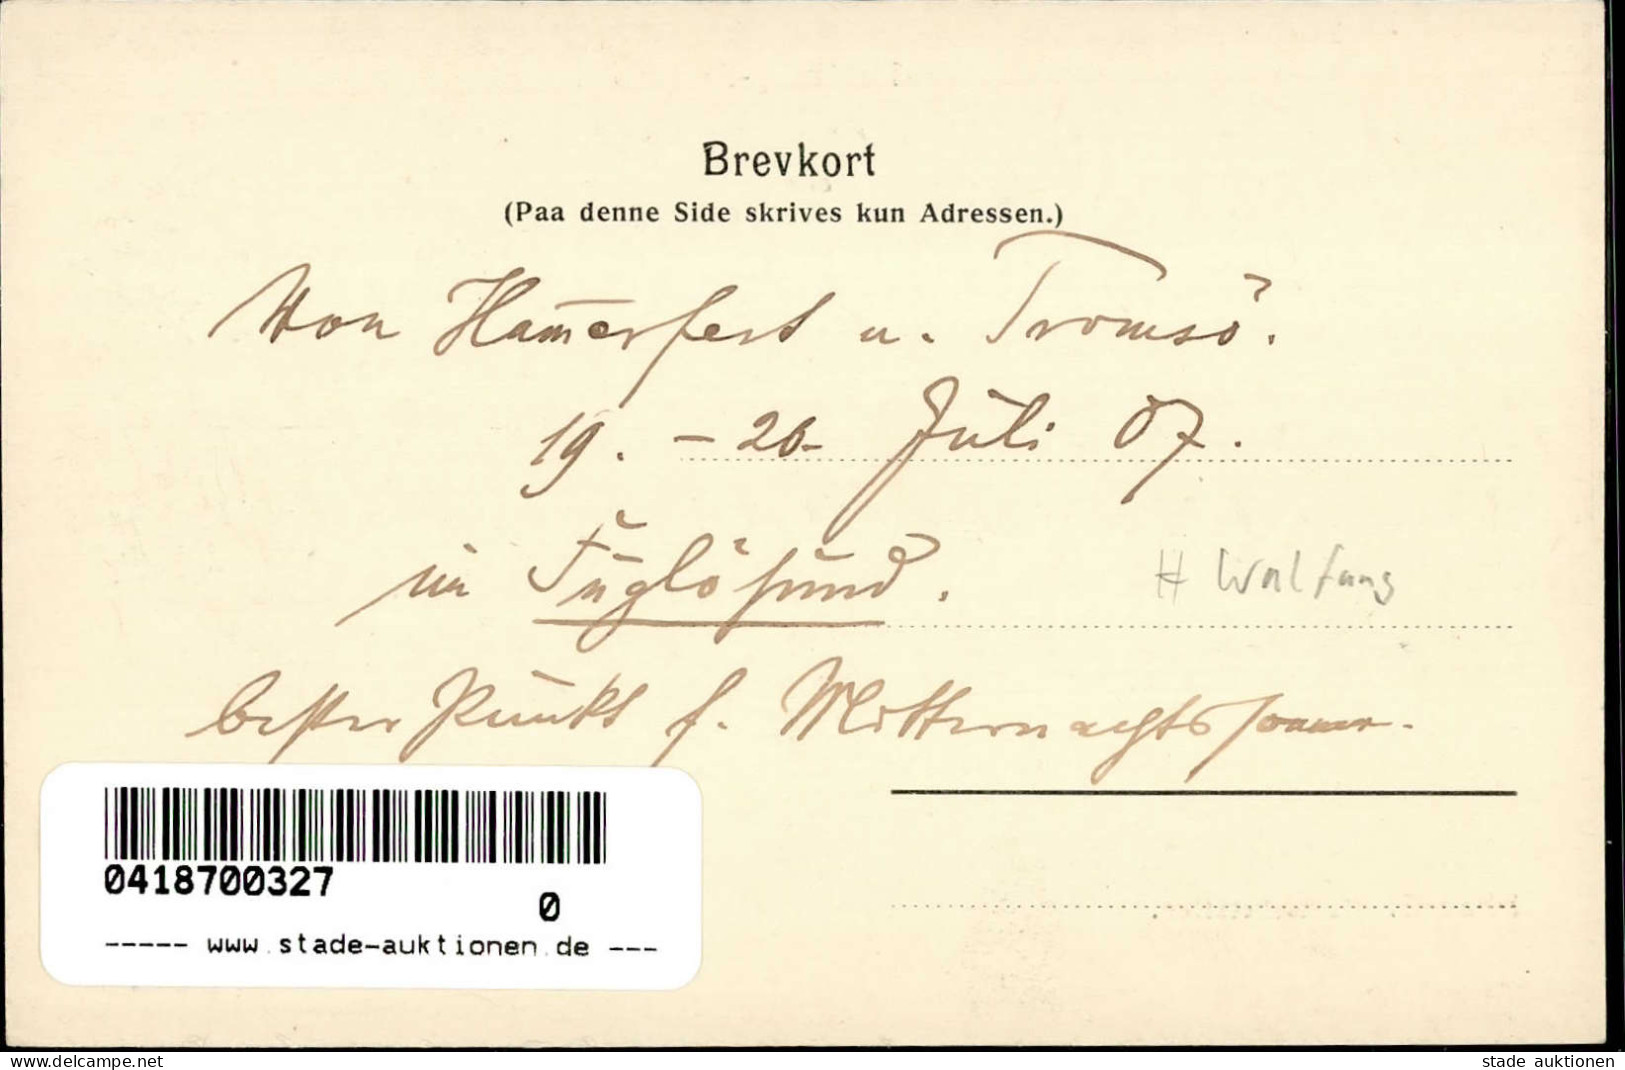 Brevkort
(Paa denne Side skrives kun Adressen.)
Von Ham̅erfest u. Tromsö.
19. – 20. Juli 07.
im Fuglösund.
# Walfang
bester Punkt f. Mitternachtssonne.
0418700327
0
----- www.stade-auktionen.de ---
www.delcampe.net
stade auktionen